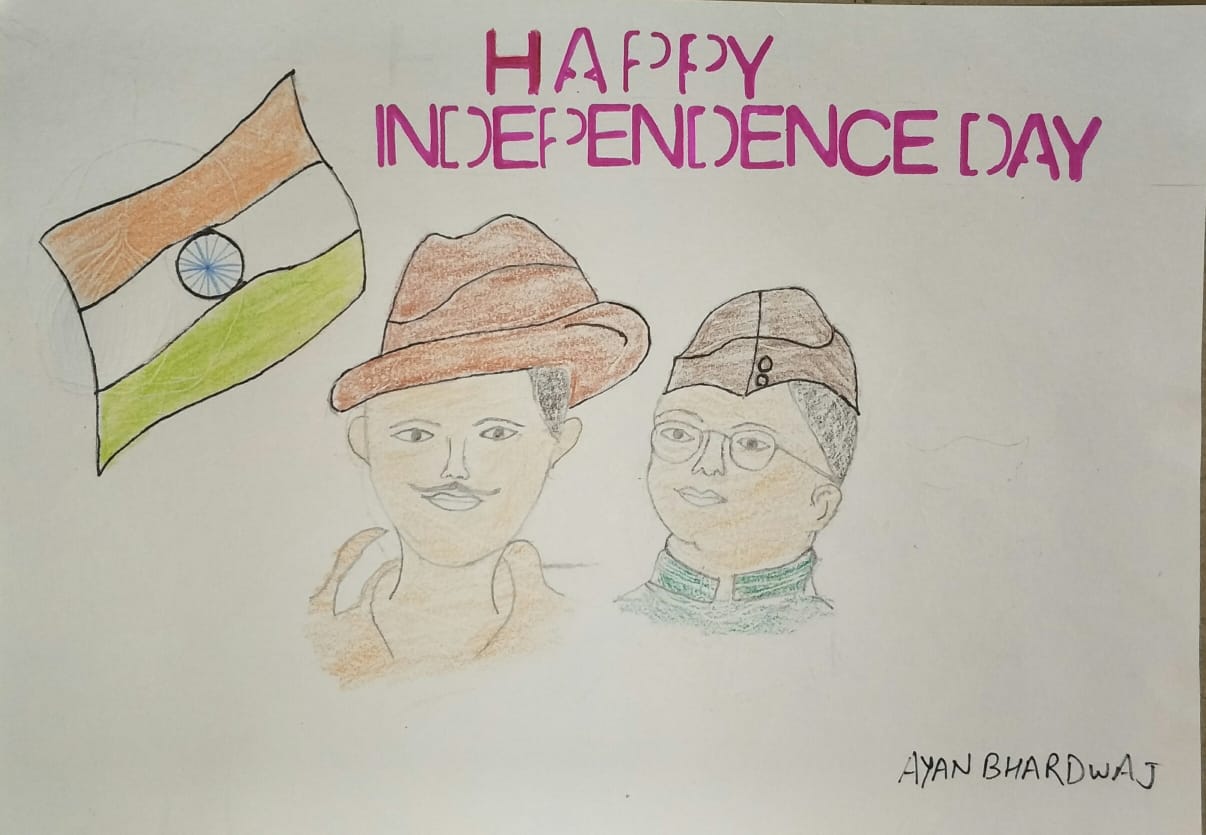 HAPPY
INDEPENDENCE DAY
AYAN BHARDWAJ